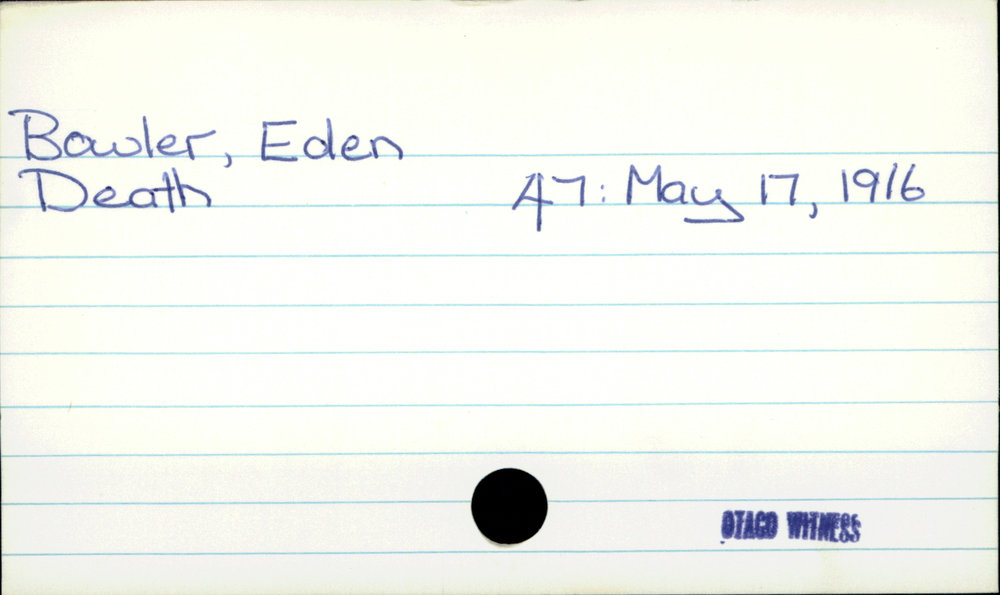 Bowler, Eden
Death 47: May 17, 1916
OTAGO WITNESS